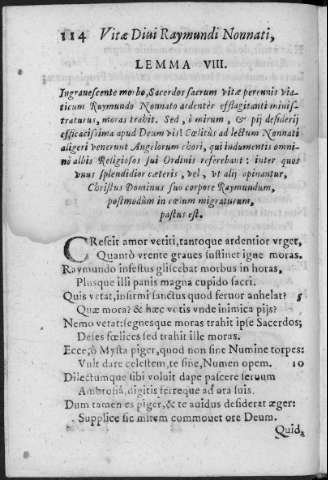 114 Vitæ Diui Raymundi Nonnati,
LEMMA VIII.
Ingrauescente morbo, Sacerdos sacrum vitæ perennis via-
ticum Raymundo Nonnato ardentèr efflagitanti minis-
traturus, moras trahit. Sed, ò mirum, & pij desiderij
efficacissima apud Deum vis! Cœlitùs ad lectum Nonnati
aligeri venerunt Angelorum chori, qui indumentis omni-
nò albis Religiosos sui Ordinis referebant: inter quos
vnus splendidior cæteris, vel, vt alij opinantur,
Christus Dominus suo corpore Raymundum,
postmodùm in cœlum migraturum,
pastus est.
CRescit amor vetiti, tantoque ardentior vrget,
Quantò vrente graues sustinet igne moras.
Raymundo infestus gliscebat morbus in horas,
Plusque illi panis magna cupido sacri.
Quis vetat, infirmi sanctus quod feruor anhelat? 5
Quæ mora? & hæc votis vnde inimica pijs?
Nemo vetat: segnesque moras trahit ipse Sacerdos;
Deses fœlices sed trahit ille moras.
Ecce, ò Mysta piger, quod non sine Numine torpes:
Vult dare celestem, te sine, Numen opem. 10
Dilectumque sibi voluit dape pascere seruum
Ambrosiâ, digitis ferreque ad ora suis.
Dum tamen es piger, & te auidus desiderat æger:
Supplice sic mitem commouet ore Deum.
Quid,